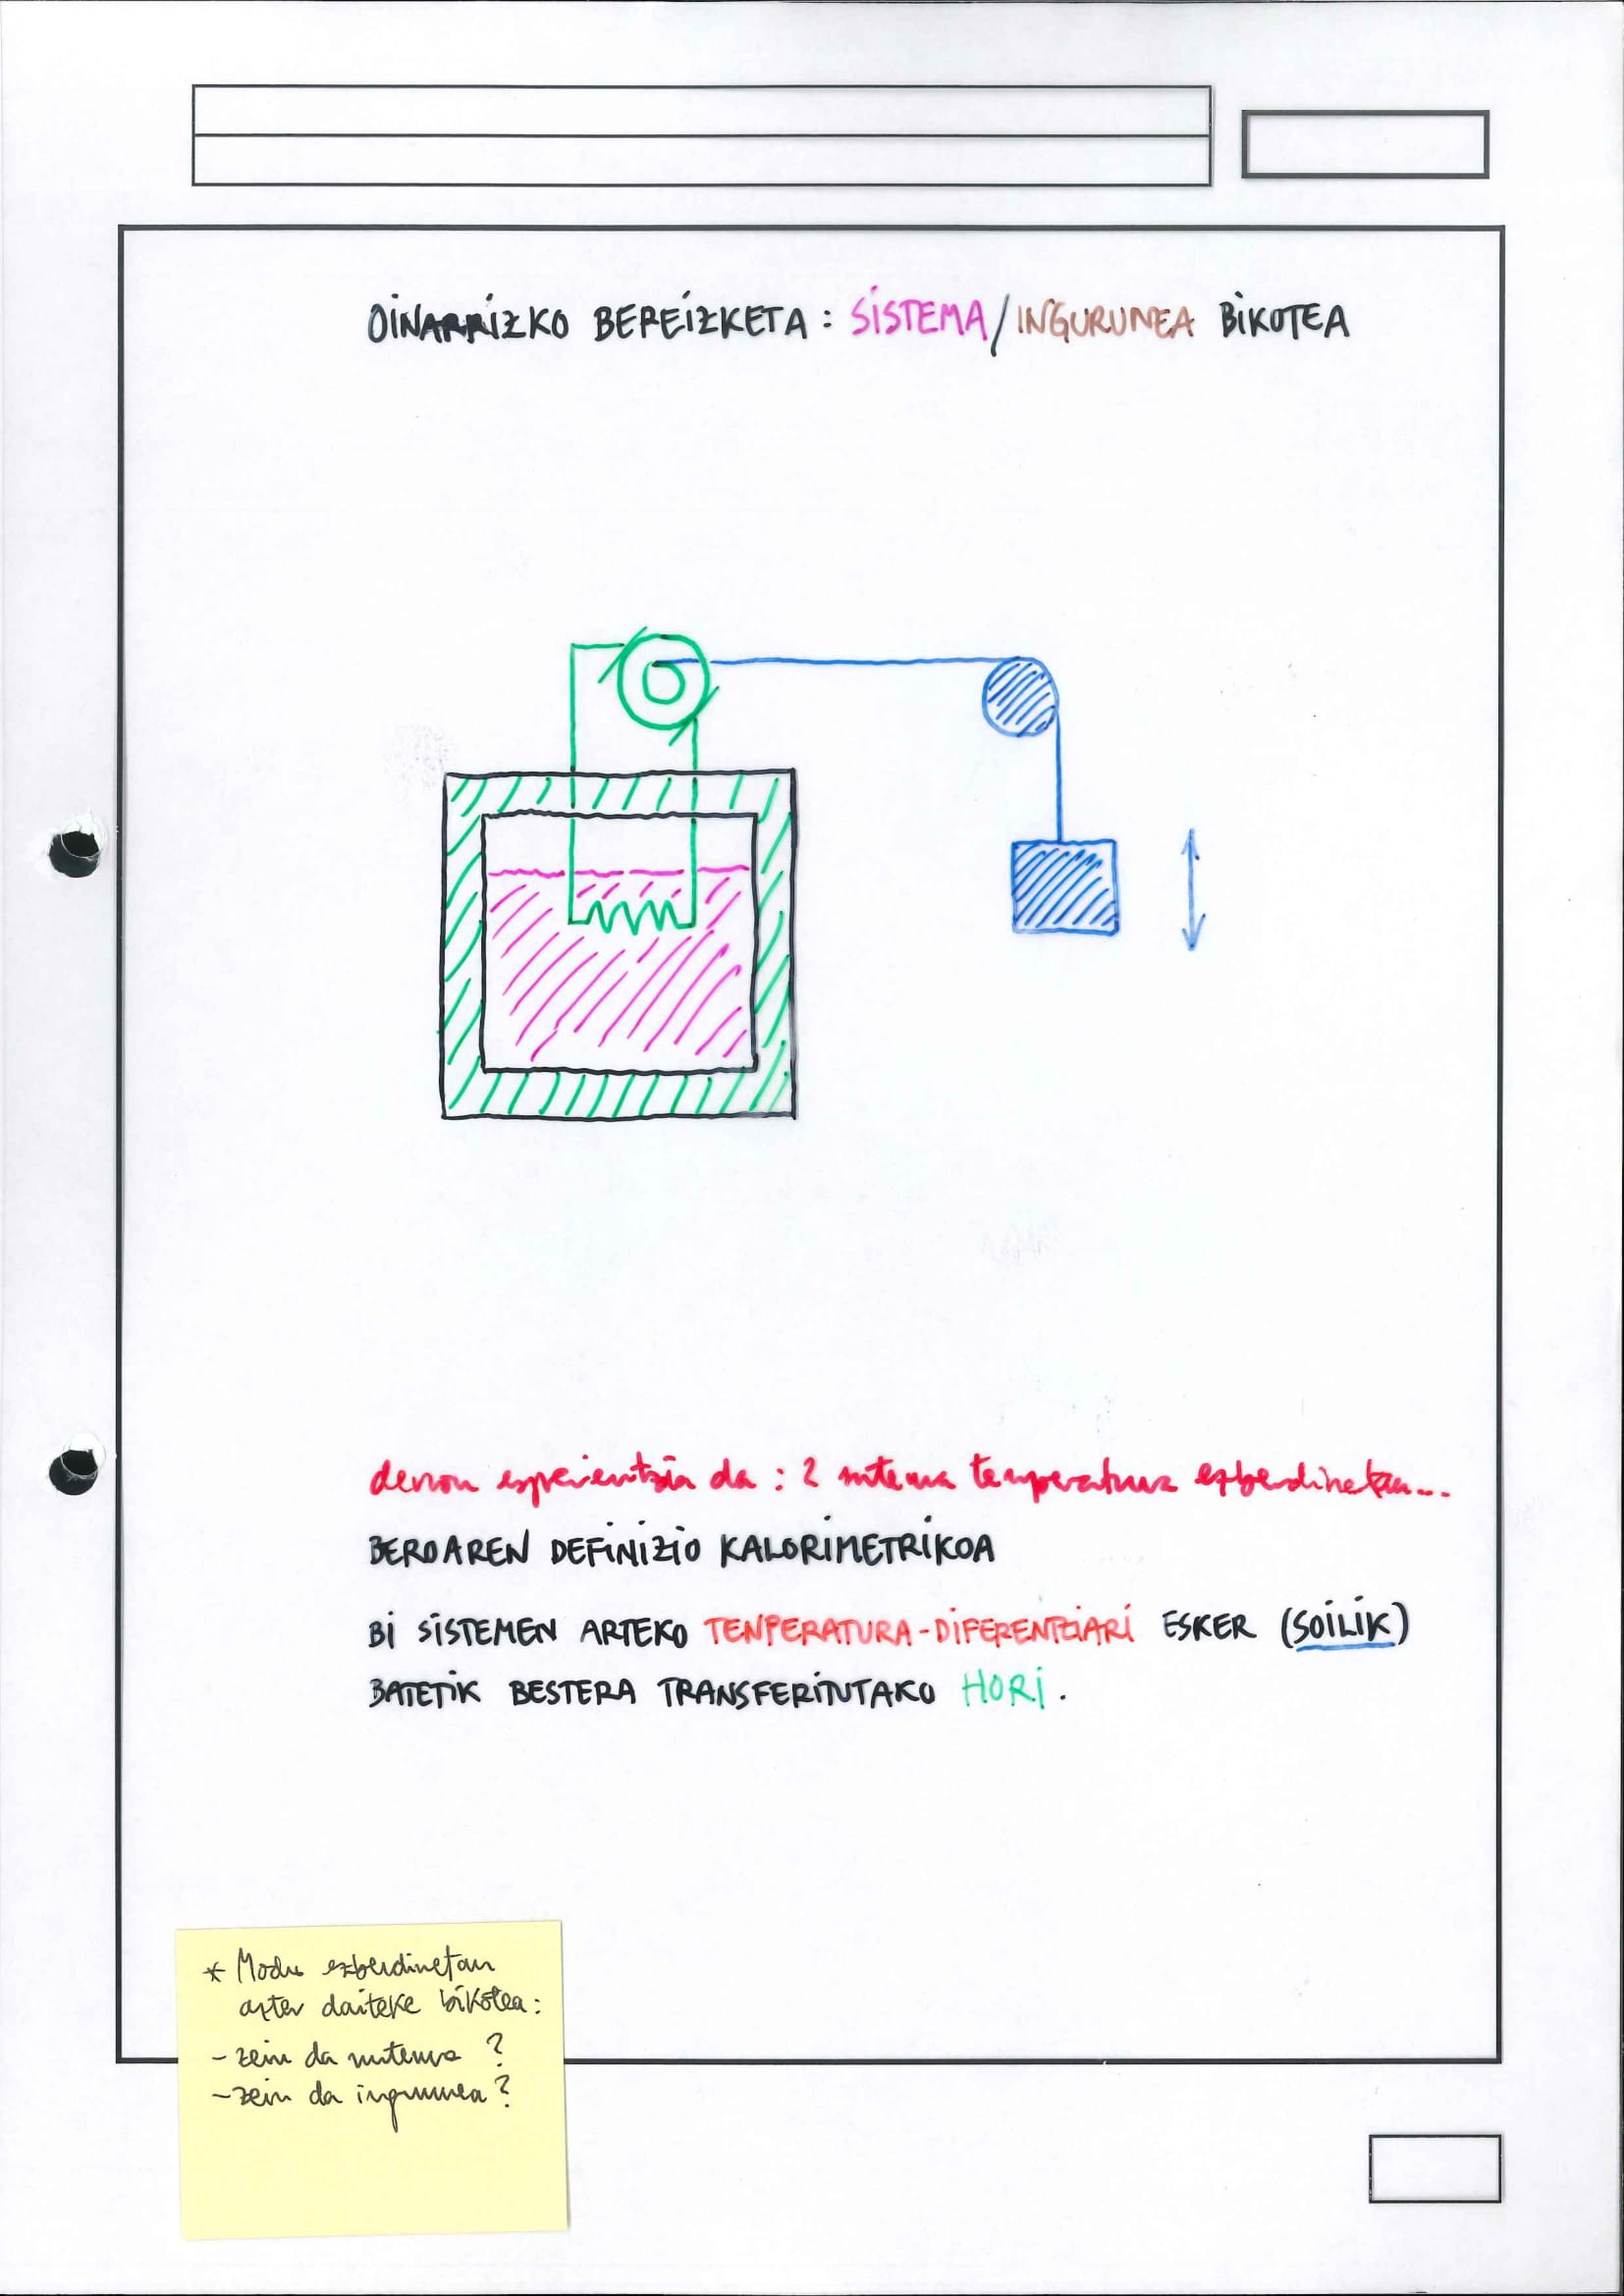 OINARRIZKO BEREIZKETA : SISTEMA/INGURUNEA BIKOTEA
denon esperientzia da : 2 sistema temperatura ezberdinetan...
BEROAREN DEFINIZIO KALORIMETRIKOA
BI SISTEMEN ARTEKO TENPERATURA-DIFERENTZIARI ESKER (SOILIK)
BATETIK BESTERA TRANSFERITUTAKO HORI.
* Modu ezberdinetan
azter daiteke bikotea:
- zein da sistema ?
- zein da ingurunea ?